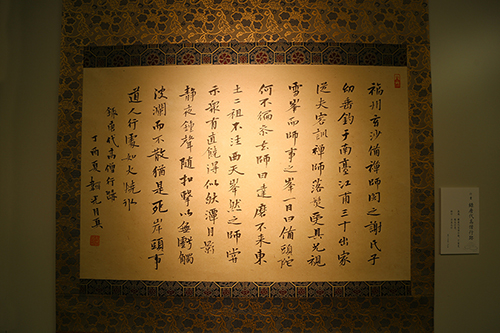 福州玄沙備禪師閩之謝氏子
幼垂釣于南臺江甫三十出家
從夫容訓禪師落髮受具兄視
雪峯而師事之峯一日曰備頭陀
何不徧參去師曰達磨不來東
土二祖不往西天峯然之師嘗
示衆有直饒得似秋潭月影
靜夜鐘聲隨扣擊以無虧觸
波瀾而不散猶是死岸頭事
道人行處如火燒冰
錄唐代高僧行蹟
丁酉夏